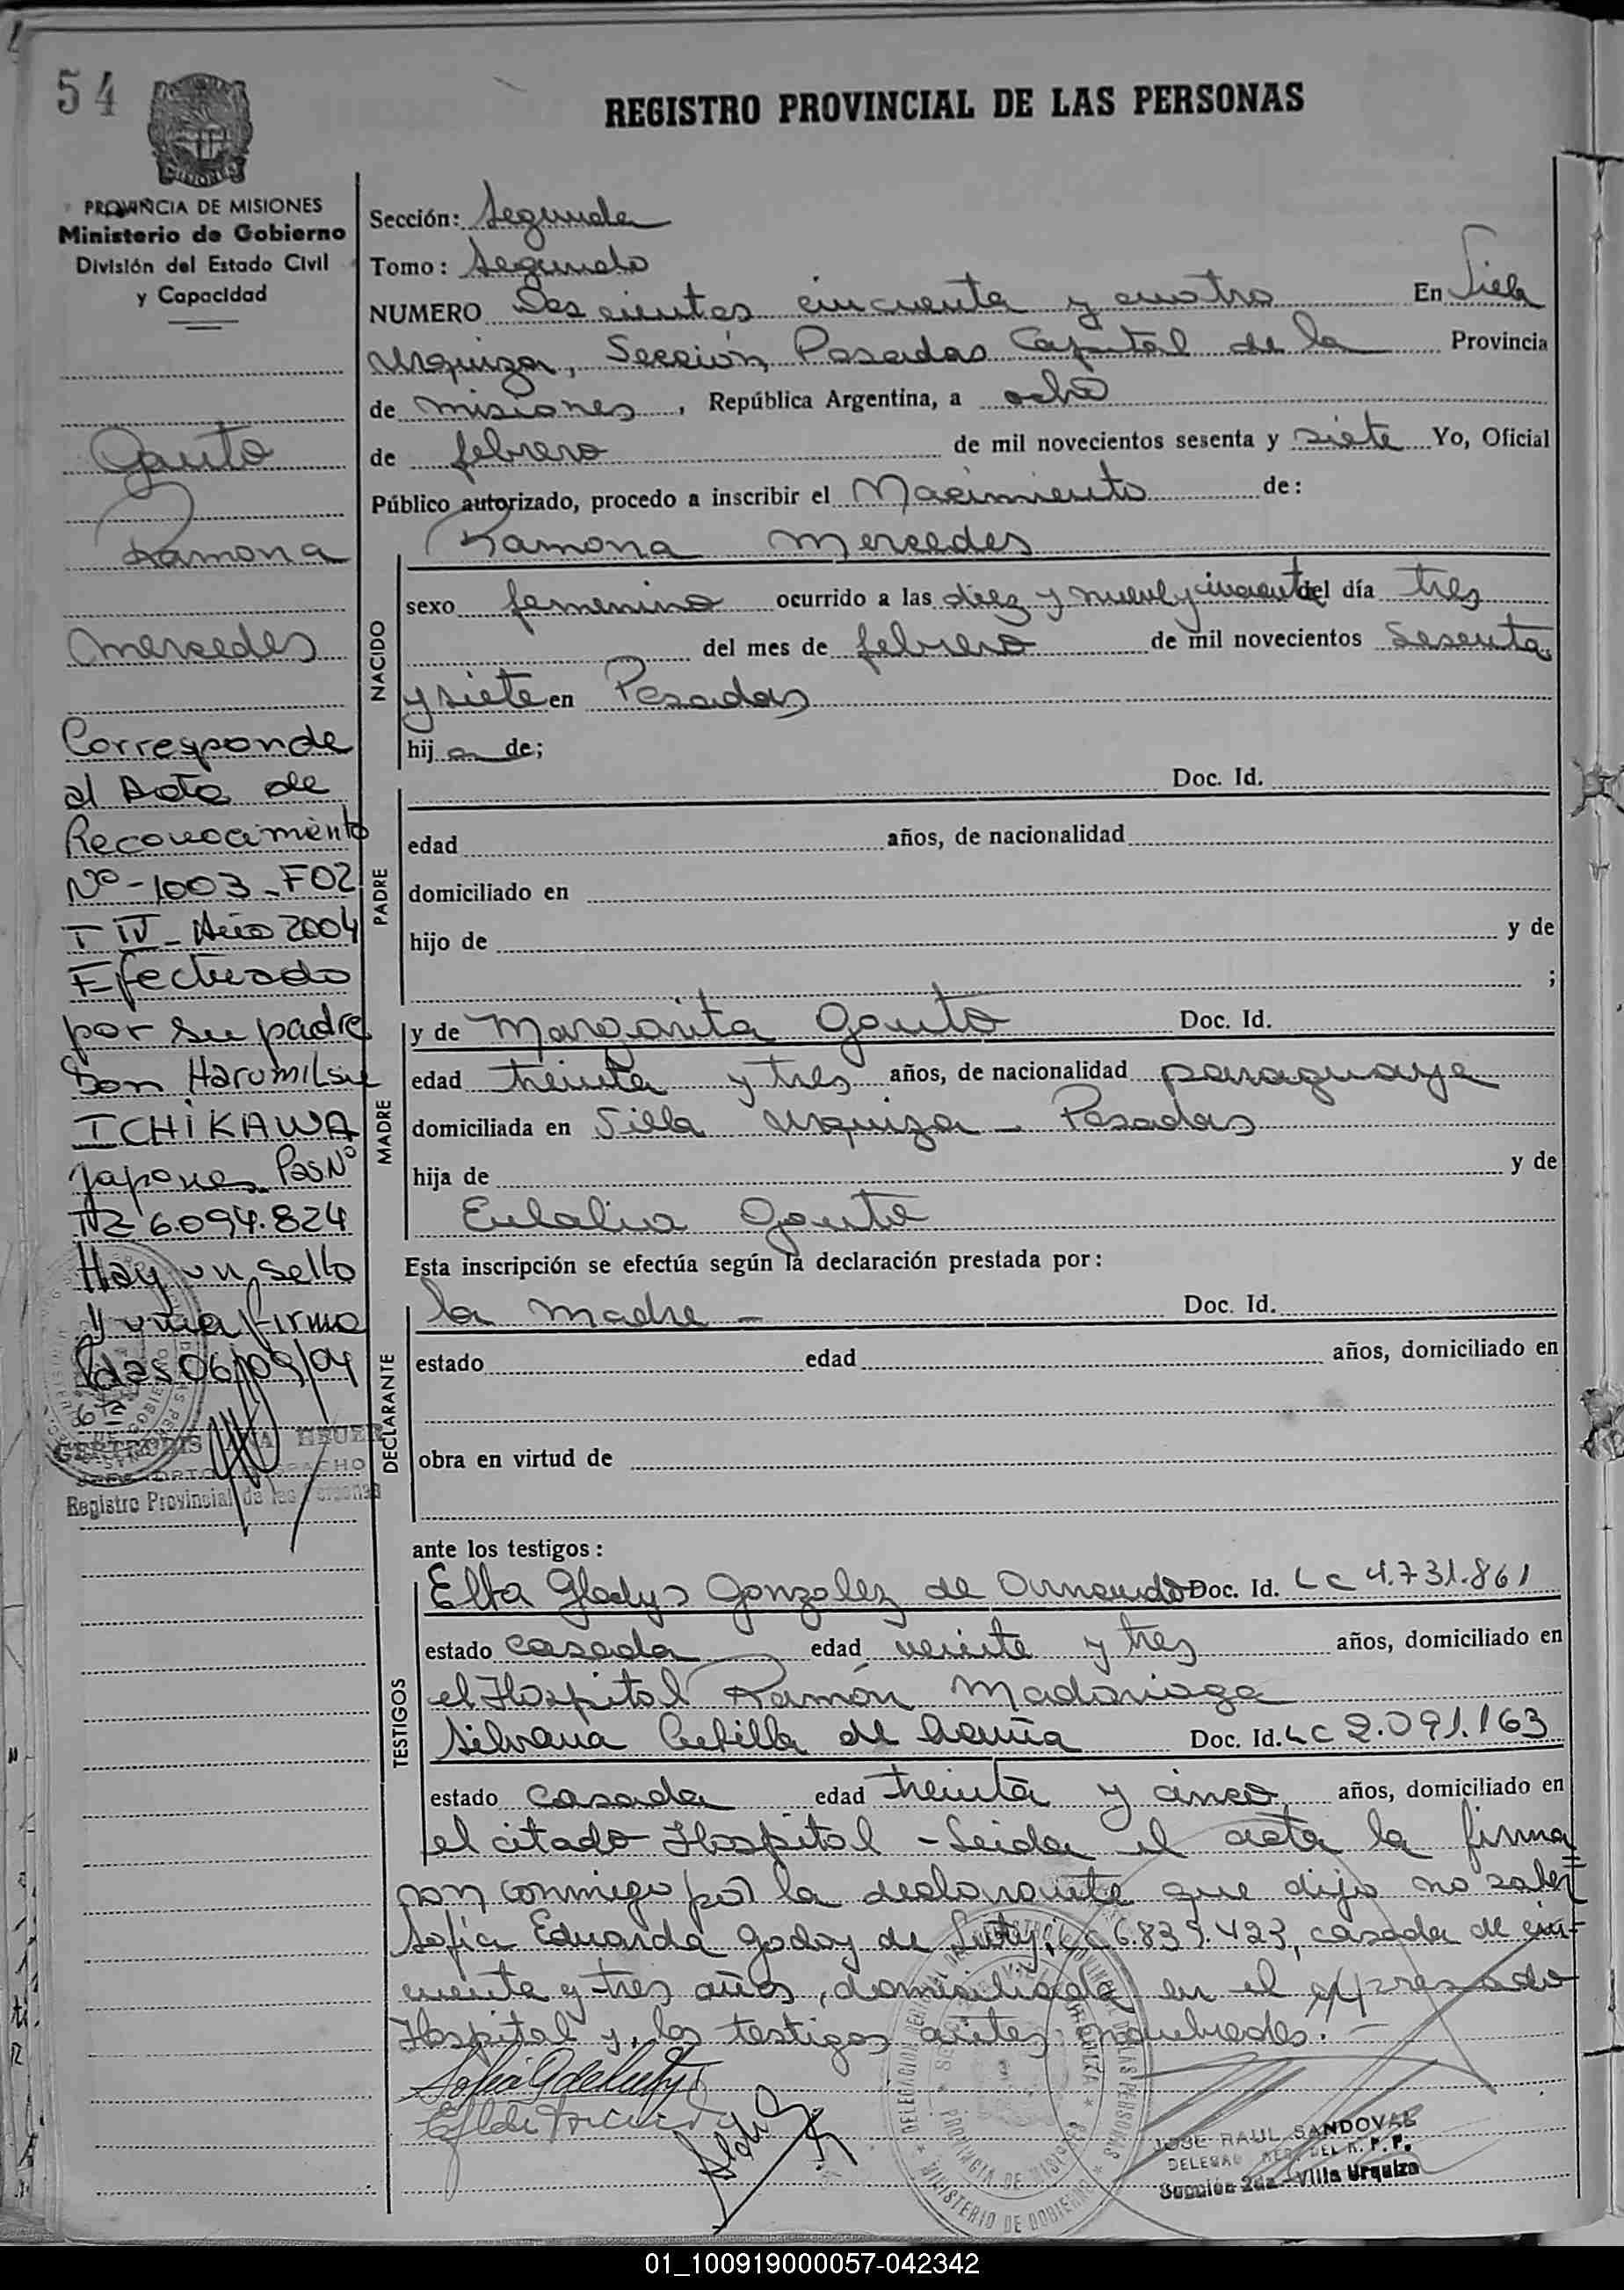 54
REGISTRO PROVINCIAL DE LAS PERSONAS
PROVINCIA DE MISIONES
Ministerio de Gobierno
División del Estado Civil
y Capacidad
Gauto
Ramona
Mercedes
Corresponde
al Acta de
Reconocimiento
Nº-1003-F02
T IV - Año 2004
Efectuado
por su padre
Don Harumilsu
ICHIKAWA
Japones Pas Nº
TZ 6.094.824
Hay un sello
y una firma
Pdas 06/09/04
GERTRUDIS ANA
Registro Provincial de las Personas
Sección: Segunda
Tomo: Segundo
NUMERO Doscientos cincuenta y cuatro En Villa
Urquiza, Sección, Posadas Capital de la Provincia
de Misiones, República Argentina, a ocho
de febrero de mil novecientos sesenta y siete Yo, Oficial
Público autorizado, procedo a inscribir el Nacimiento de:
Ramona Mercedes
NACIDO
sexo femenino ocurrido a las diez y nueve y cincuenta del día tres
del mes de febrero de mil novecientos sesenta
y siete en Posadas
hij a de;
PADRE
Doc. Id.
edad años, de nacionalidad
domiciliado en
hijo de y de
;
MADRE
y de Margarita Gauto Doc. Id.
edad treinta y tres años, de nacionalidad paraguaya
domiciliada en Villa Urquiza - Posadas
hija de y de
Eulalia Gauto
Esta inscripción se efectúa según la declaración prestada por:
DECLARANTE
la madre - Doc. Id.
estado edad años, domiciliado en
obra en virtud de
ante los testigos:
TESTIGOS
Elba Gladys Gonzalez de Doc. Id. LC 4.731.861
estado casada edad veinte y tres años, domiciliado en
el Hospital Ramón Madariaga
Silvana de Acuña Doc. Id. LC 2.091.163
estado casada edad treinta y cinco años, domiciliado en
el citado Hospital - Leida el acta la firma
con conmigo por la declarante que dijo no saber
Sofia Eduarda Godoy de LC 6.839.423, casada de cin-
cuenta y tres años, domiciliada en el expresado
Hospital y los testigos antes nombrados. -
JOSE RAUL SANDOVAL
DEL R. P. P.
Sección 2da - Villa Urquiza
01_100919000057-042342